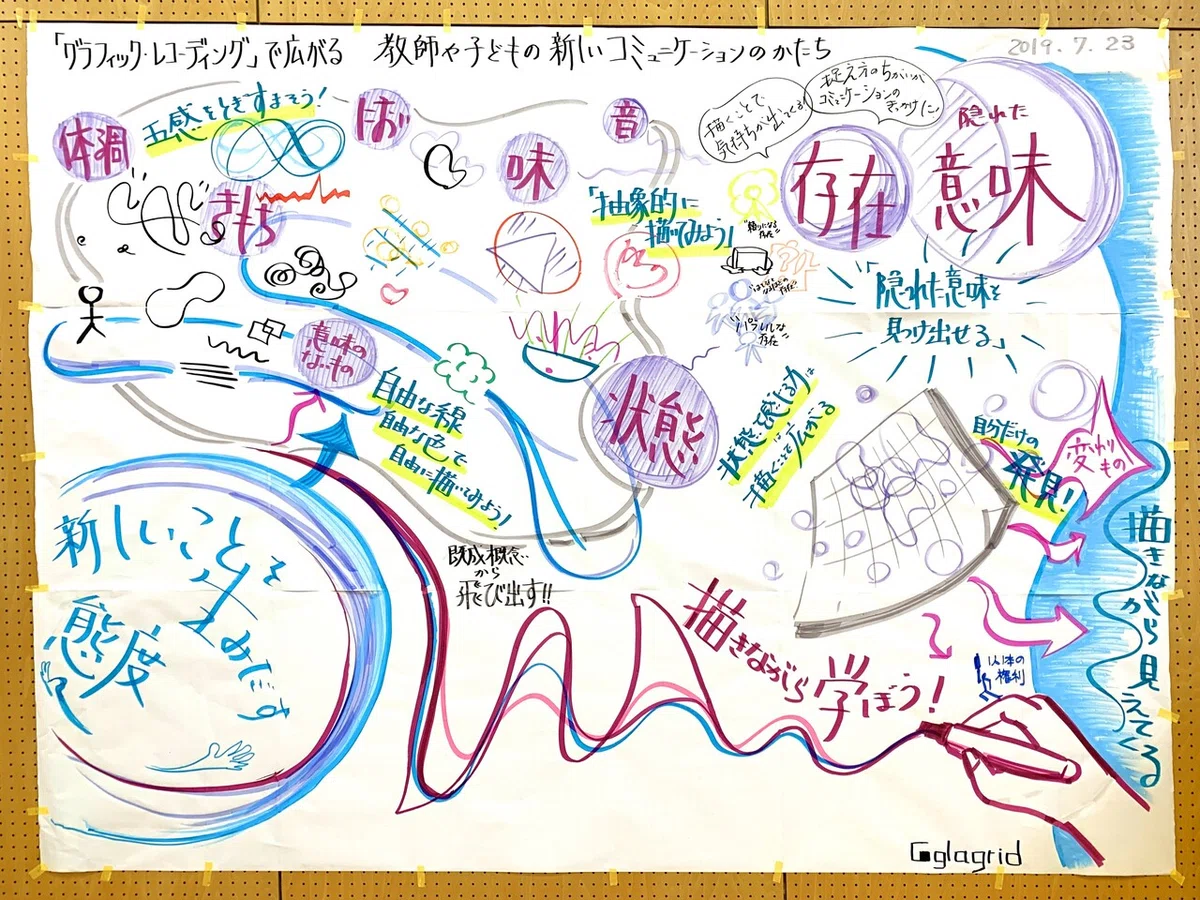 「グラフィック・レコーディング」で広がる 教師や子どもの新しいコミュニケーションのかたち
2019.7.23
体調
五感をとぎすまそう!
きもち
味
音
描くことで
気持ちが出てくる!
捉え方のちがいが
コミュニケーションの
きっかけに
存在
隠れた
意味
「抽象的に
描いてみよう」
"頼りになる
存在"
"パワフルな
存在"
「隠れた意味を
見つけ出せる」
意味の
ないもの
自由な線
自由な色で
自由に描いてみよう!
状態
状態を感じる力は
描くことで広がる
自分だけの
発見!
変わり
もの
描きながら見えてくる
新しいことを
生みだす
態度
既成概念
から
飛び出す!!
描きながら
学ぼう!
権利
Gglagrid